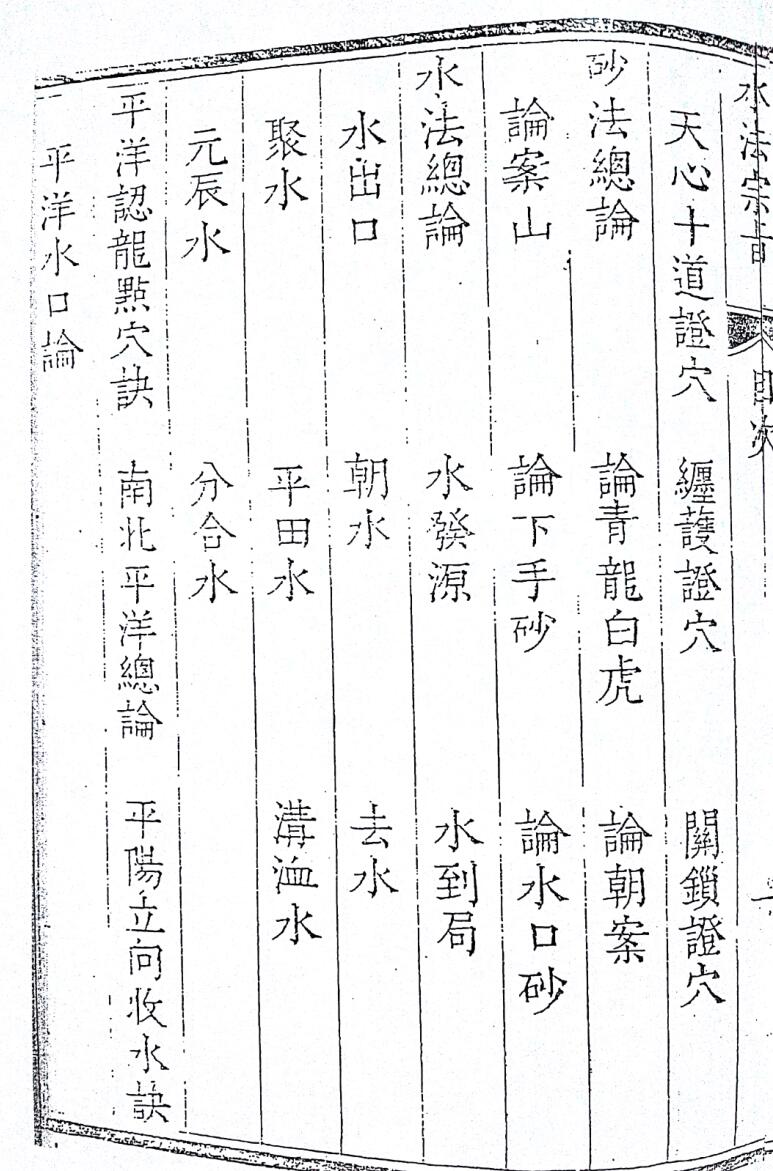 水法宗旨 目次
天心十道證穴 纏護證穴 關鎖證穴
砂法總論 論青龍白虎 論朝案
論案山 論下手砂 論水口砂
水法總論 水發源 水到局
水出口 朝水 去水
聚水 平田水 溝洫水
元辰水 分合水
平洋認龍點穴訣 南北平洋總論 平陽立向收水訣
平洋水口論